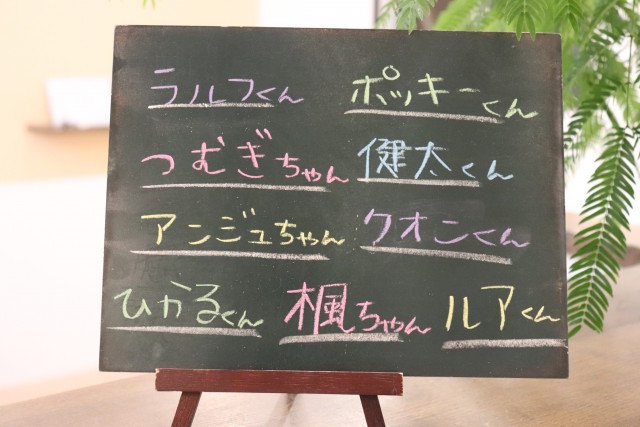 ラルフくん ポッキーくん
つむぎちゃん 健太くん
アンジュちゃん クオンくん
ひかるくん 楓ちゃん ルアくん